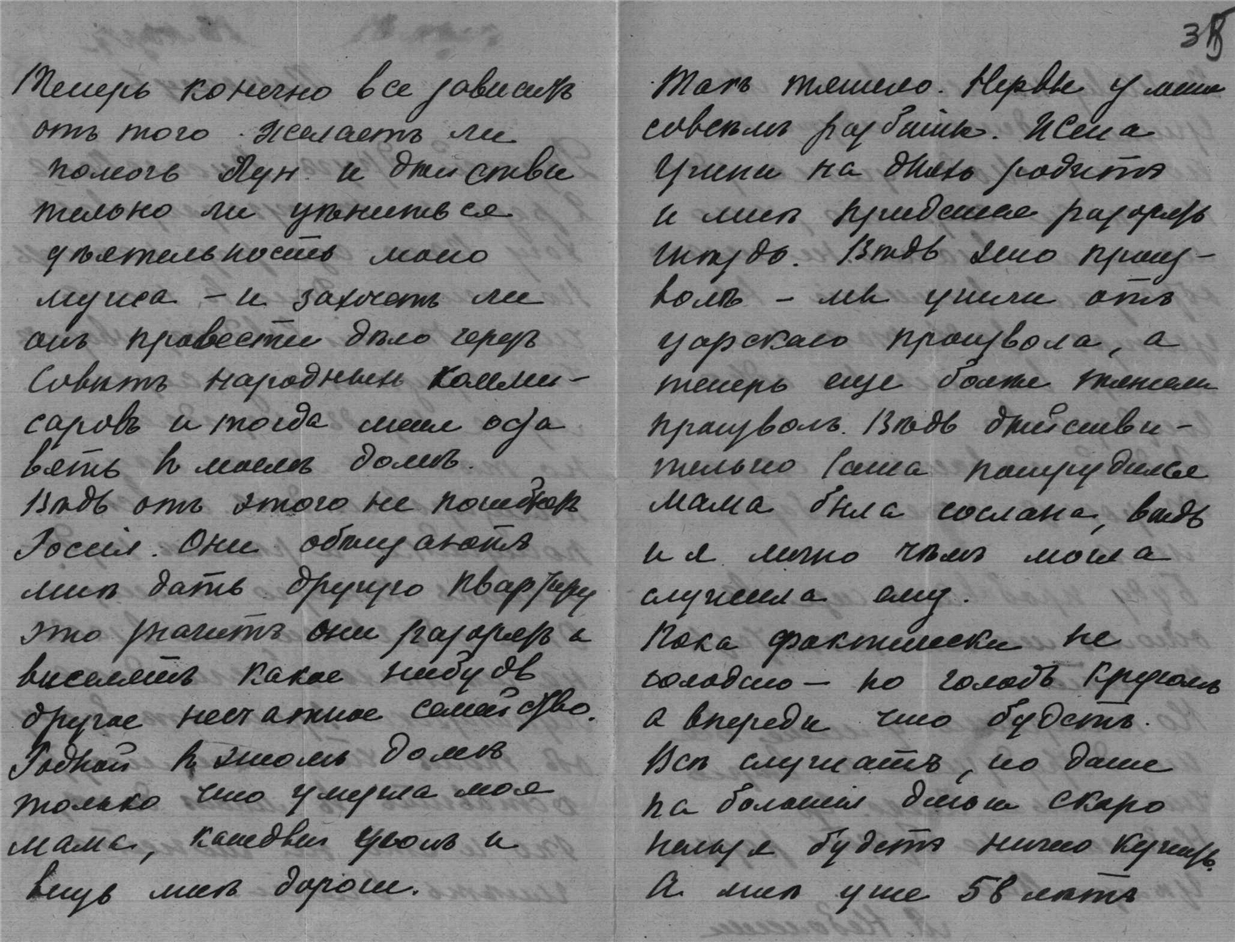 Теперь конечно все зависитъ
отъ того желаетъ ли
помочь Лун. и действи
тельно ли цѣнитъ вся
дѣятельность моего
мужа – и захочетъ ли
онъ провести дѣло черезъ
Совѣтъ народныхъ комми-
саровъ и тогда меня оста
вятъ въ моемъ домѣ.
Вѣдь отъ этого не погибнетъ
Россiя. Они обѣщаютъ
мнѣ дать другую квартиру
это значитъ они разорятъ и
выселятъ какое нибудь
другое несчастное семейство.
Родной въ этомъ домѣ
только что умерла моя
мама, каждый уголъ и
вещь мнѣ дороги.
38
Такъ тяжело. Нервы у меня
совсѣмъ разбиты. Жена
на дняхъ родитъ
и мнѣ придется разорять
гнѣздо. Вѣдь это произ-
волъ – мы ушли отъ
царскаго произвола, а
теперь еще болѣе тяжелый
произволъ. Вѣдь действи-
тельно Саша потрудился
мама была сослана, вѣдь
и я лично чѣмъ могла
служила ему.
Пока фактически не
голодно – но голодъ кругомъ
а впереди что будетъ.
Всѣ служатъ, но даже
на большiя деньги скоро
нельзя будетъ ничего купить.
А мнѣ уже 58 лѣтъ